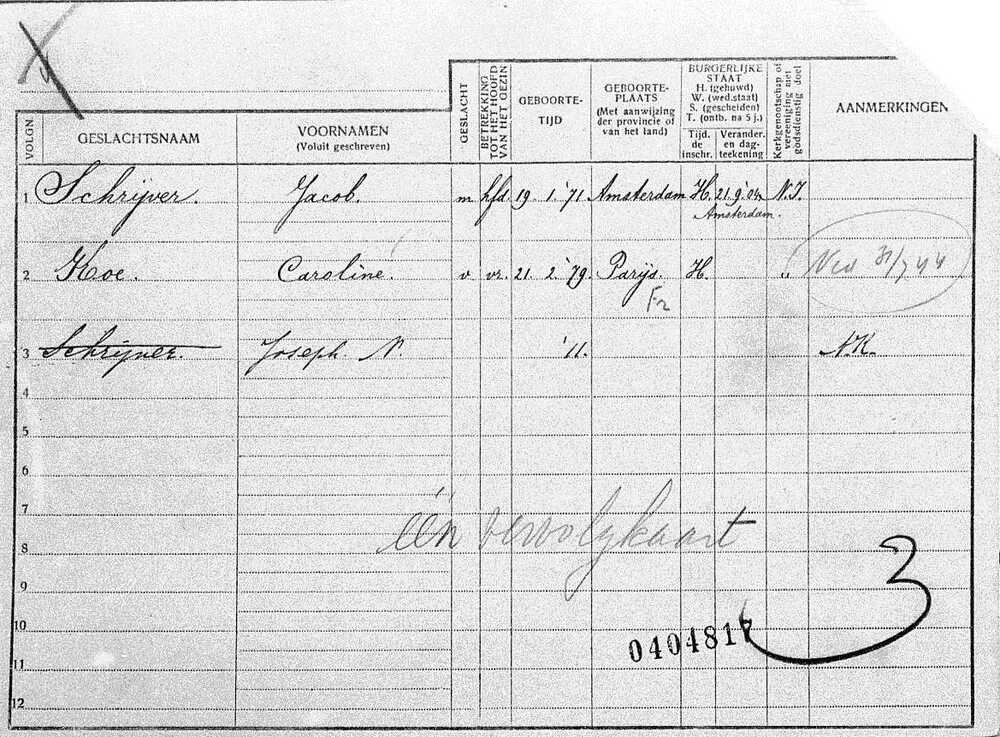 VOLGN.
GESLACHTSNAAM
VOORNAMEN
(Voluit geschreven)
GESLACHT
BETREKKING
TOT HET HOOFD
VAN HET GEZIN
GEBOORTE-
TIJD
GEBOORTE-
PLAATS
(Met aanwijzing
der provincie of
van het land)
BURGERLIJKE
STAAT
H. (gehuwd)
W. (wed.staat)
S. (gescheiden)
T. (ontb. na 5 j.)
Tijd.
de
inschr.
Verander.
en dag-
teekening
Kerkgenootschap of
vereeniging met
godsdienstig doel
AANMERKINGEN
1 Schrijver. Jacob. m. hfd. 19. 1. '71 Amsterdam H. 21.9.'04 N.I.
Amsterdam.
2 Koe. Caroline. v. vr. 21. 2. '79. Parijs. H. " Ned 31/7 44
Fr
3 Schrijver. Joseph N. '11. N.K.
4
5
6
7
één vervolgkaart
8
9
3
10
0404817
11
12